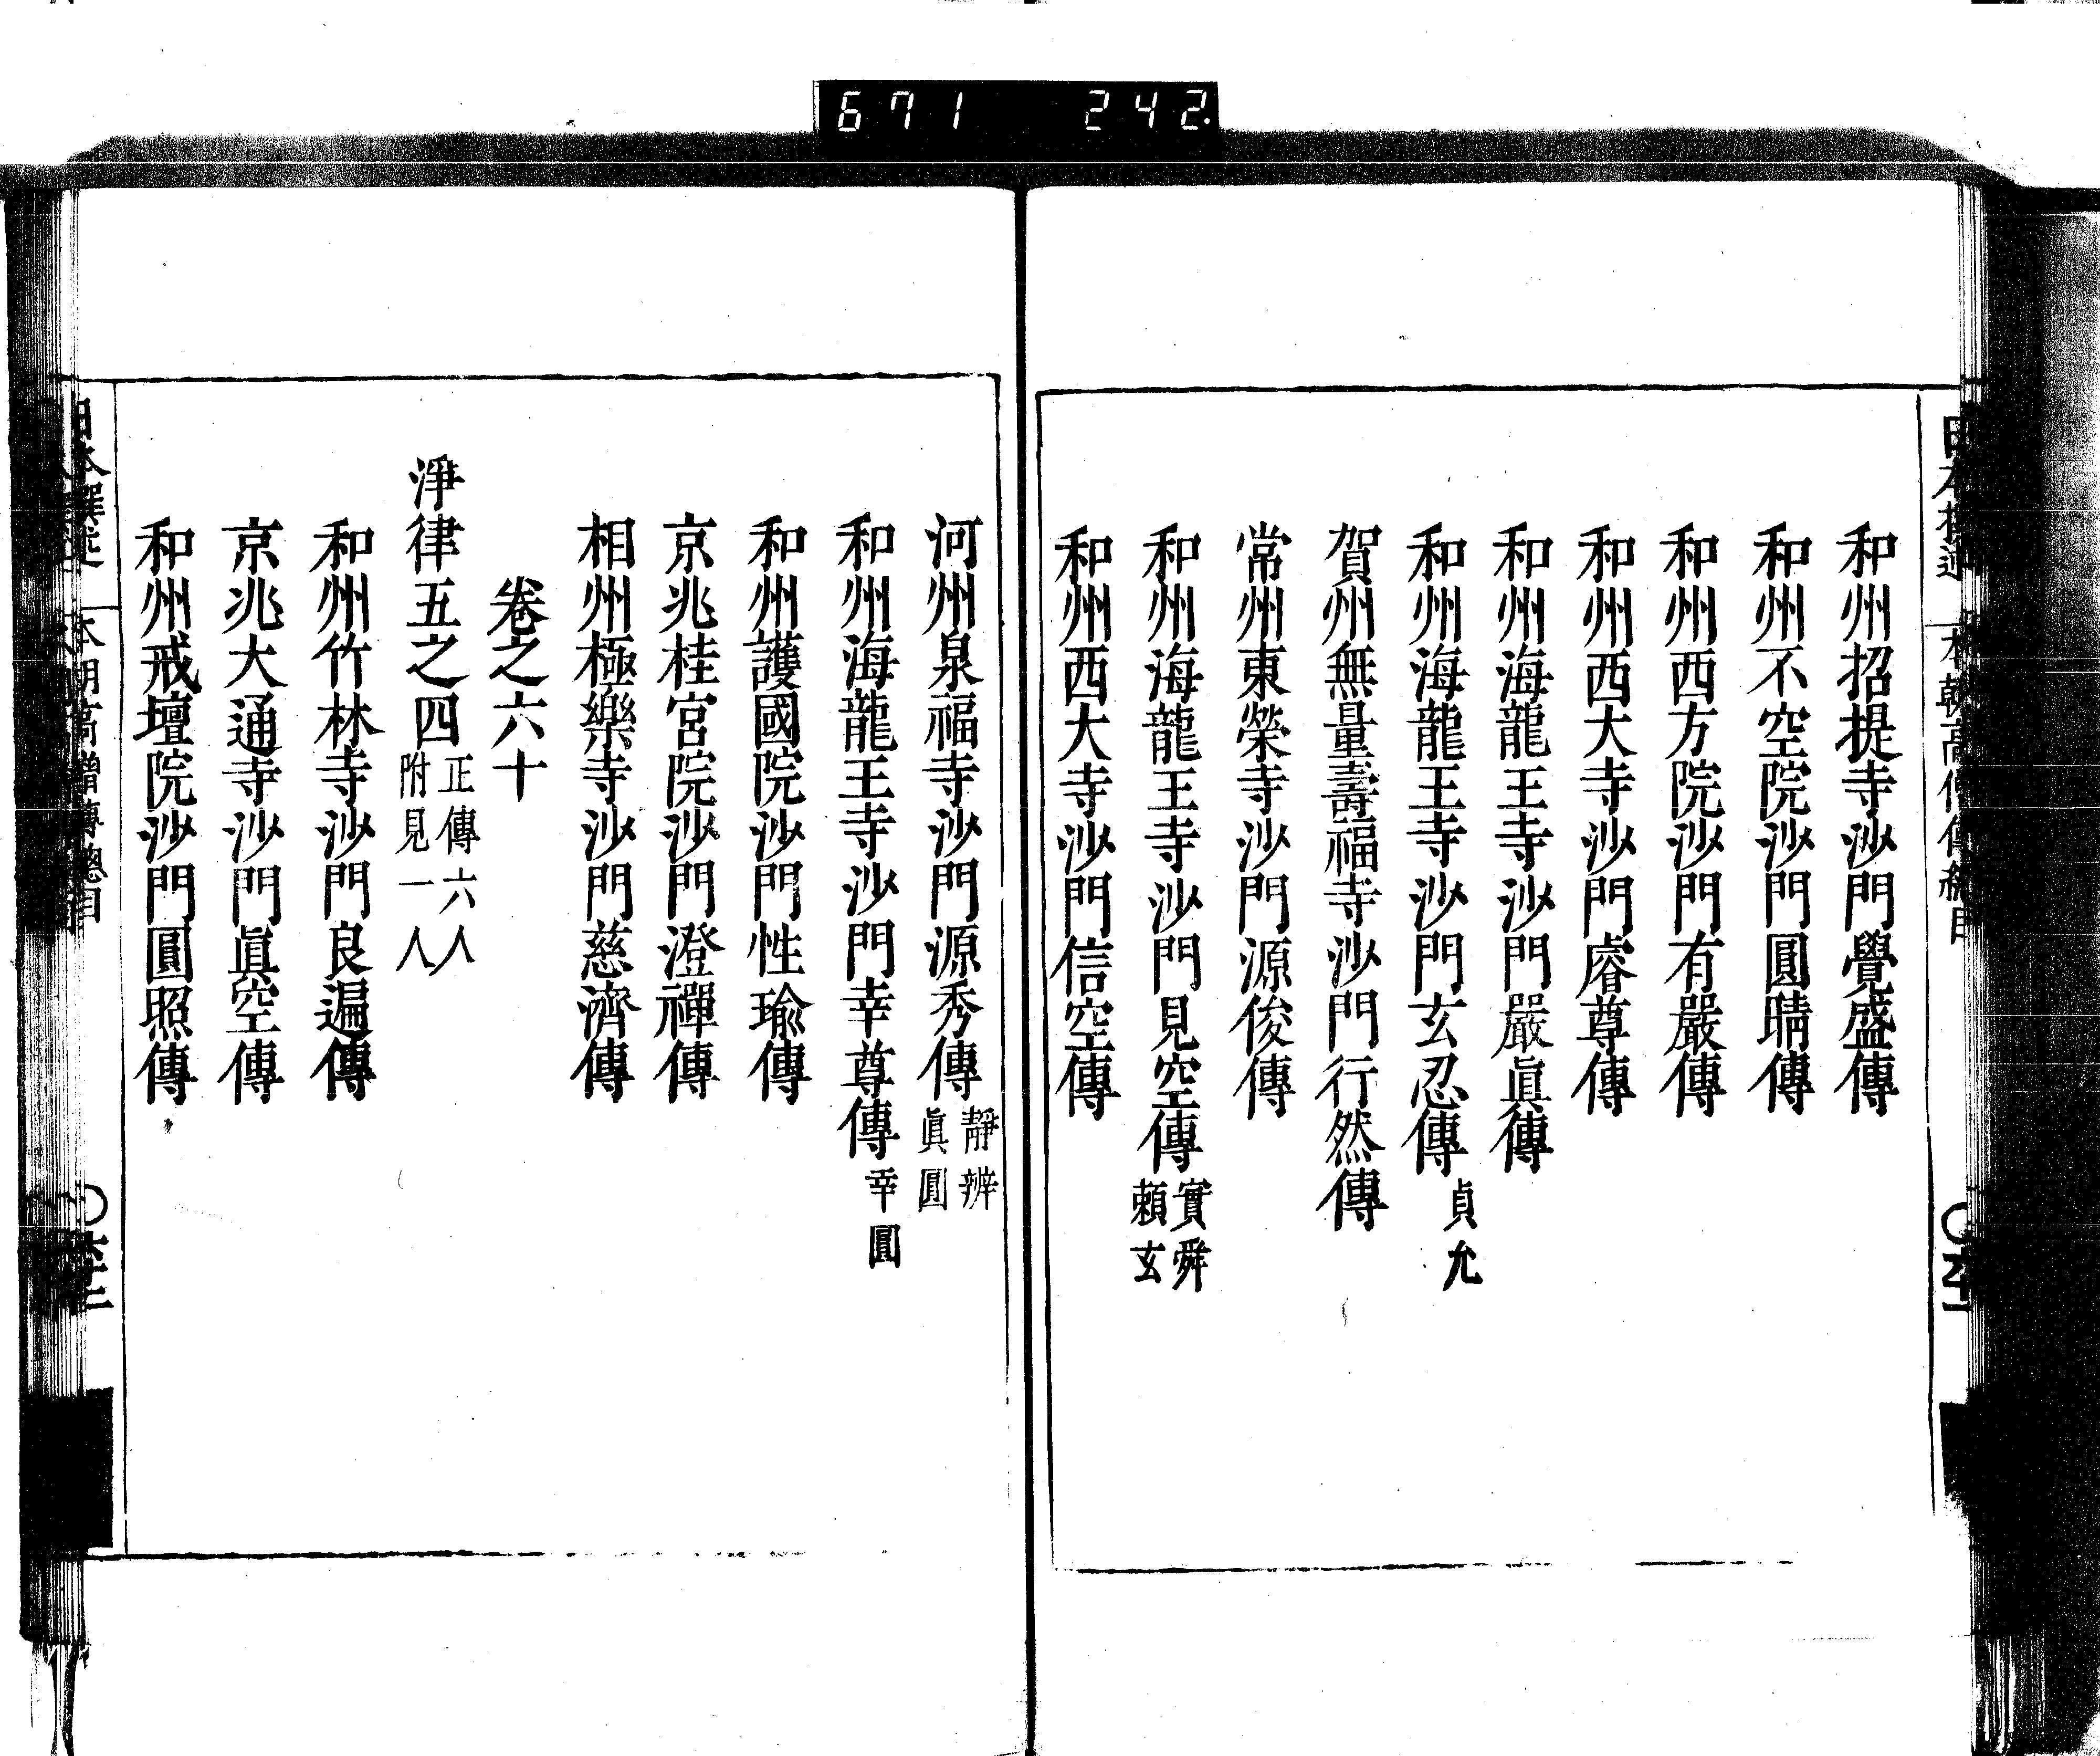 671 242
日本撰述 本朝高僧傳總目
和州招提寺沙門覺盛傳
和州不空院沙門圓晴傳
和州西方院沙門有嚴傳
和州西大寺沙門睿尊傳
和州海龍王寺沙門嚴眞傳
和州海龍王寺沙門玄忍傳 貞允
賀州無量壽福寺沙門行然傳
常州東榮寺沙門源俊傳
和州海龍王寺沙門見空傳 實舜 賴玄
和州西大寺沙門信空傳
河州泉福寺沙門源秀傳 靜辨 眞圓
和州海龍王寺沙門幸尊傳 幸圓
和州護國院沙門性瑜傳
京兆桂宮院沙門澄禪傳
相州極樂寺沙門慈濟傳
卷之六十
淨律五之四 正傳六人 附見一人
和州竹林寺沙門良遍傳
京兆大通寺沙門眞空傳
和州戒壇院沙門圓照傳
日本撰述 本朝高僧傳總目